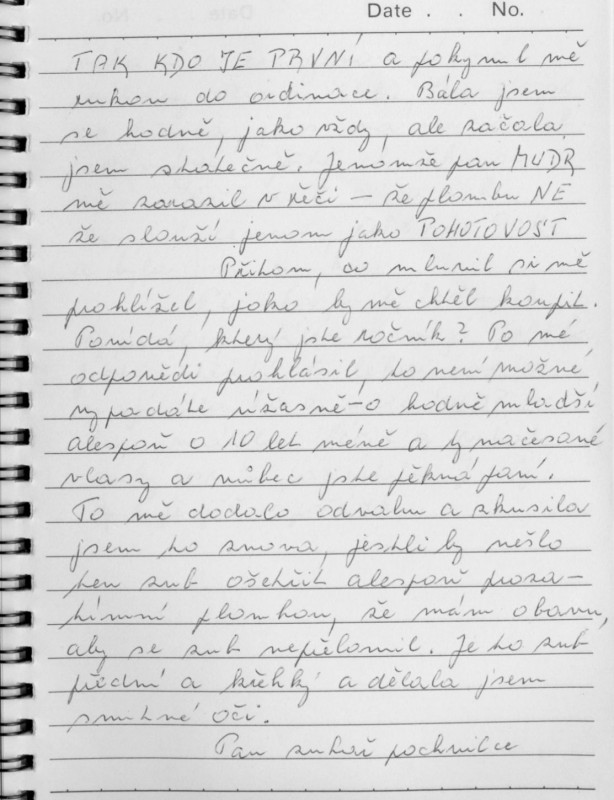 Date . . No.
TAK KDO JE PRVNÍ a pokynul mě
rukou do ordinace. Bála jsem
se hodně, jako vždy, ale začala
jsem statečně. Jenomže pan MUDR
mě zarazil v řeči – že plombu NE
že slouží jenom jako POHOTOVOST
Přitom, co mluvil si mě
prohlížel, jako by mě chtěl koupit.
Povídá, který jste ročník? Po mé
odpovědi prohlásil, to není možné
vypadáte úžasně – o hodně mladší
alespoň o 10 let méně a ty načesané
vlasy a vůbec jste pěkná paní.
To mě dodalo odvahu a zkusila
jsem to znova, jestli by nešlo
ten zub ošetřit alespoň proza-
tímní plombou, že mám obavu,
aby se zub nepřelomil. Je to zub
přední a křehký a dělala jsem
smutné oči.
Pan zubař pochvilce